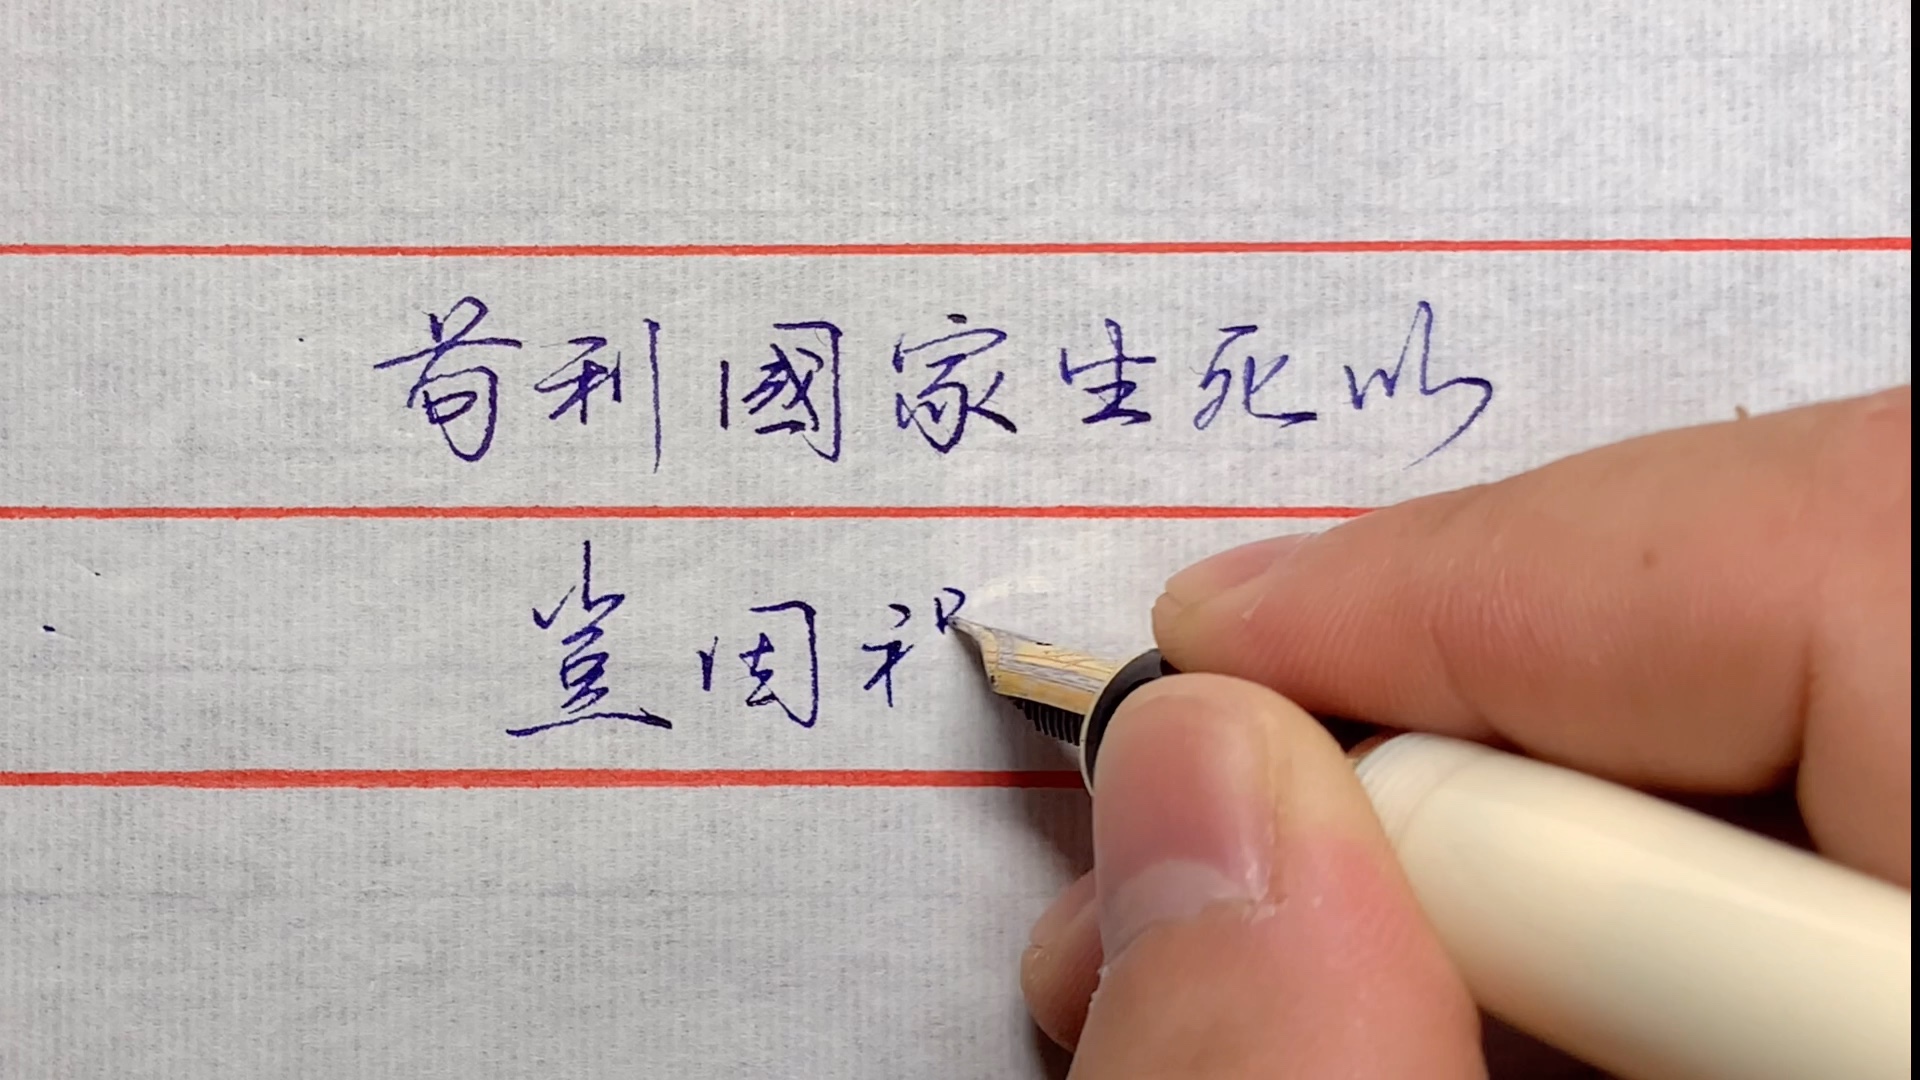 苟利國家生死以
豈因